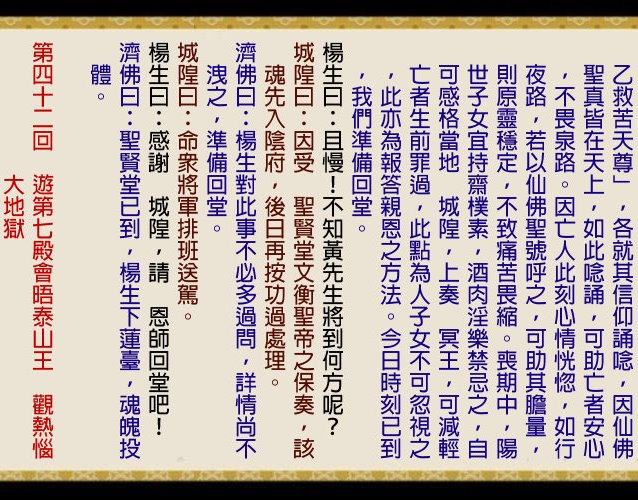 乙救苦天尊」，各就其信仰誦唸，因仙佛
聖真皆在天上，如此唸誦，可助亡者安心
，不畏泉路。因亡人此刻心情恍惚，如行
夜路，若以仙佛聖號呼之，可助其膽量，
則原靈穩定，不致痛苦畏縮。喪期中，陽
世子女宜持齋樸素，酒肉淫樂禁忌之，自
可感格當地　城隍，上奏　冥王，可減輕
亡者生前罪過，此點為人子女不可忽視之
，此亦為報答親恩之方法。今日時刻已到
，我們準備回堂。
楊生曰：且慢！不知黃先生將到何方呢？
城隍曰：因受　聖賢堂文衡聖帝之保奏，該
魂先入陰府，後日再按功過處理。
濟佛曰：楊生對此事不必多過問，詳情尚不
洩之，準備回堂。
城隍曰：命眾將軍排班送駕。
楊生曰：感謝　城隍，請　恩師回堂吧！
濟佛曰：聖賢堂已到，楊生下蓮臺，魂魄投
體。
第四十二回　遊第七殿會晤泰山王　觀熱惱
大地獄